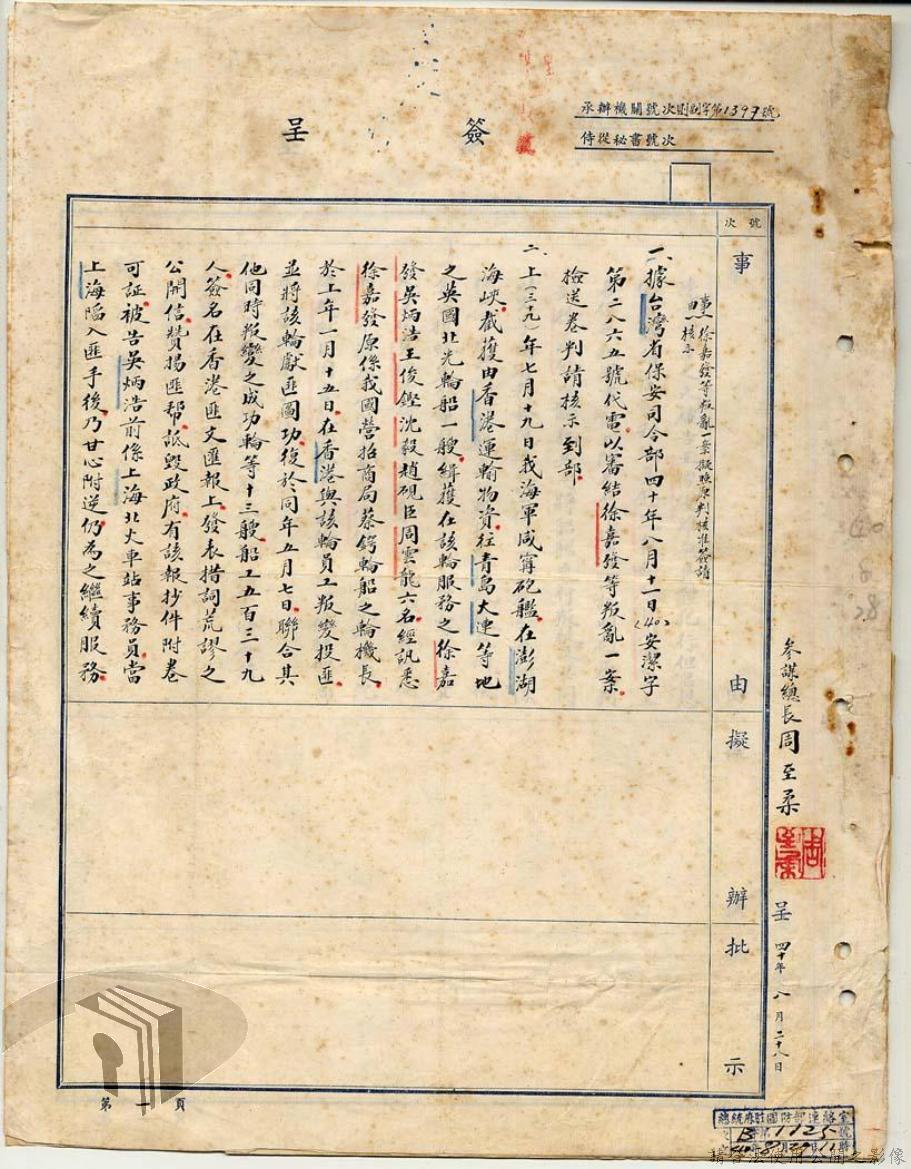 承辦機關號次則創字第1397號
侍從秘書號次
簽呈
號次
事由
擬辦
批示
事由
徐嘉發等叛亂一案擬照原判核准簽請
核示
一、據台灣省保安司令部四十年八月十一日(40)安潔字
第二八六五號代電以審結徐嘉發等叛亂一案
檢送卷判請核示到部
二、上(三九)年七月十九日我海軍咸寧砲艦在澎湖
海峽截獲由香港運輸物資往青島大連等地
之英國北光輪船一艘緝獲在該輪服務之徐嘉
發吳炳浩王俊鏗沈毅趙硯臣周雲龍六名經訊悉
徐嘉發原係我國營招商局蔡鍔輪船之輪機長
於上年一月十五日在香港與該輪員工叛變投匪
並將該輪獻匪圖功復於同年五月七日聯合其
他同時叛變之成功輪等十三艘船工五百三十九
人簽名在香港匪文匯報上發表措詞荒謬之
公開信贊揚匪幫詆毀政府有該報抄件附卷
可証被告吳炳浩前係上海北火車站事務員當
上海陷入匪手後乃甘心附逆仍為之繼續服務
參謀總長周至柔
周至柔
呈 四十年八月二十八日
第一頁
總統府駐國防部連絡室
B 第1125號
40 8月29日11時
請合法使用公開之影像